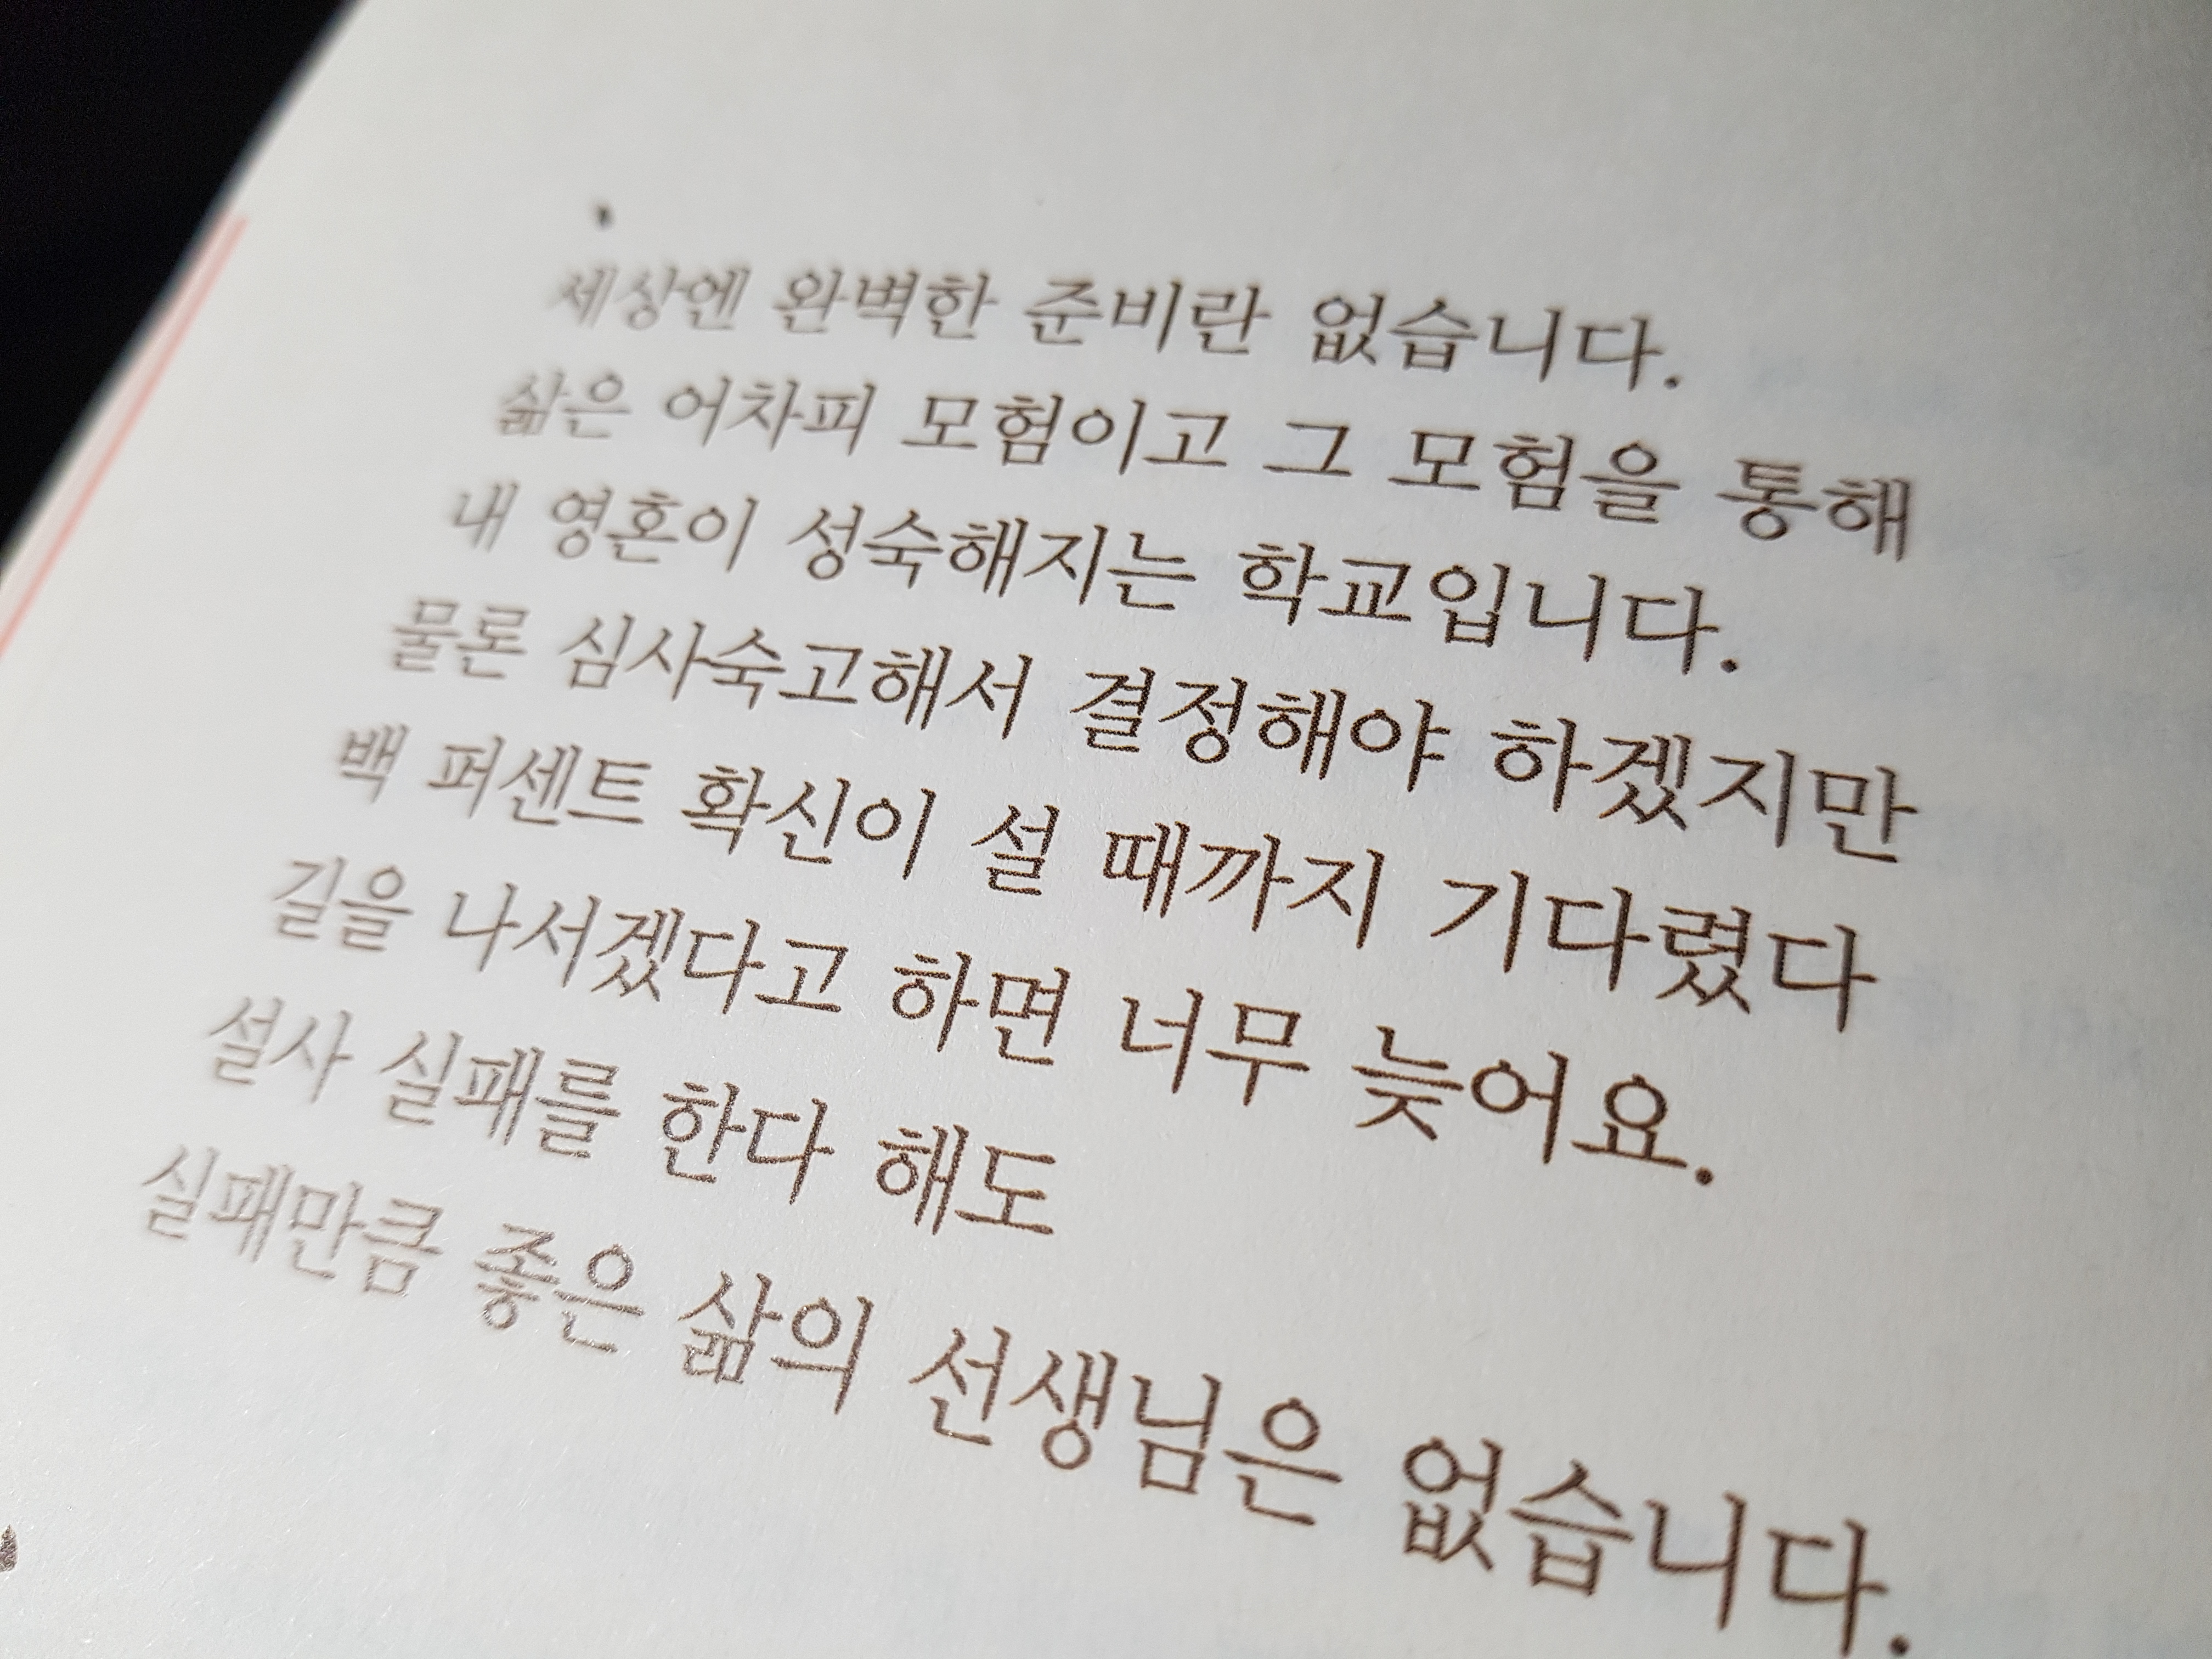 세상엔 완벽한 준비란 없습니다.
삶은 어차피 모험이고 그 모험을 통해
내 영혼이 성숙해지는 학교입니다.
물론 심사숙고해서 결정해야 하겠지만
백 퍼센트 확신이 설 때까지 기다렸다
길을 나서겠다고 하면 너무 늦어요.
설사 실패를 한다 해도
실패만큼 좋은 삶의 선생님은 없습니다.